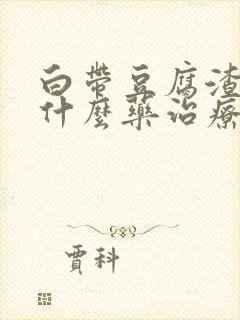 白帶豆腐渣
什麼藥治療
賈科